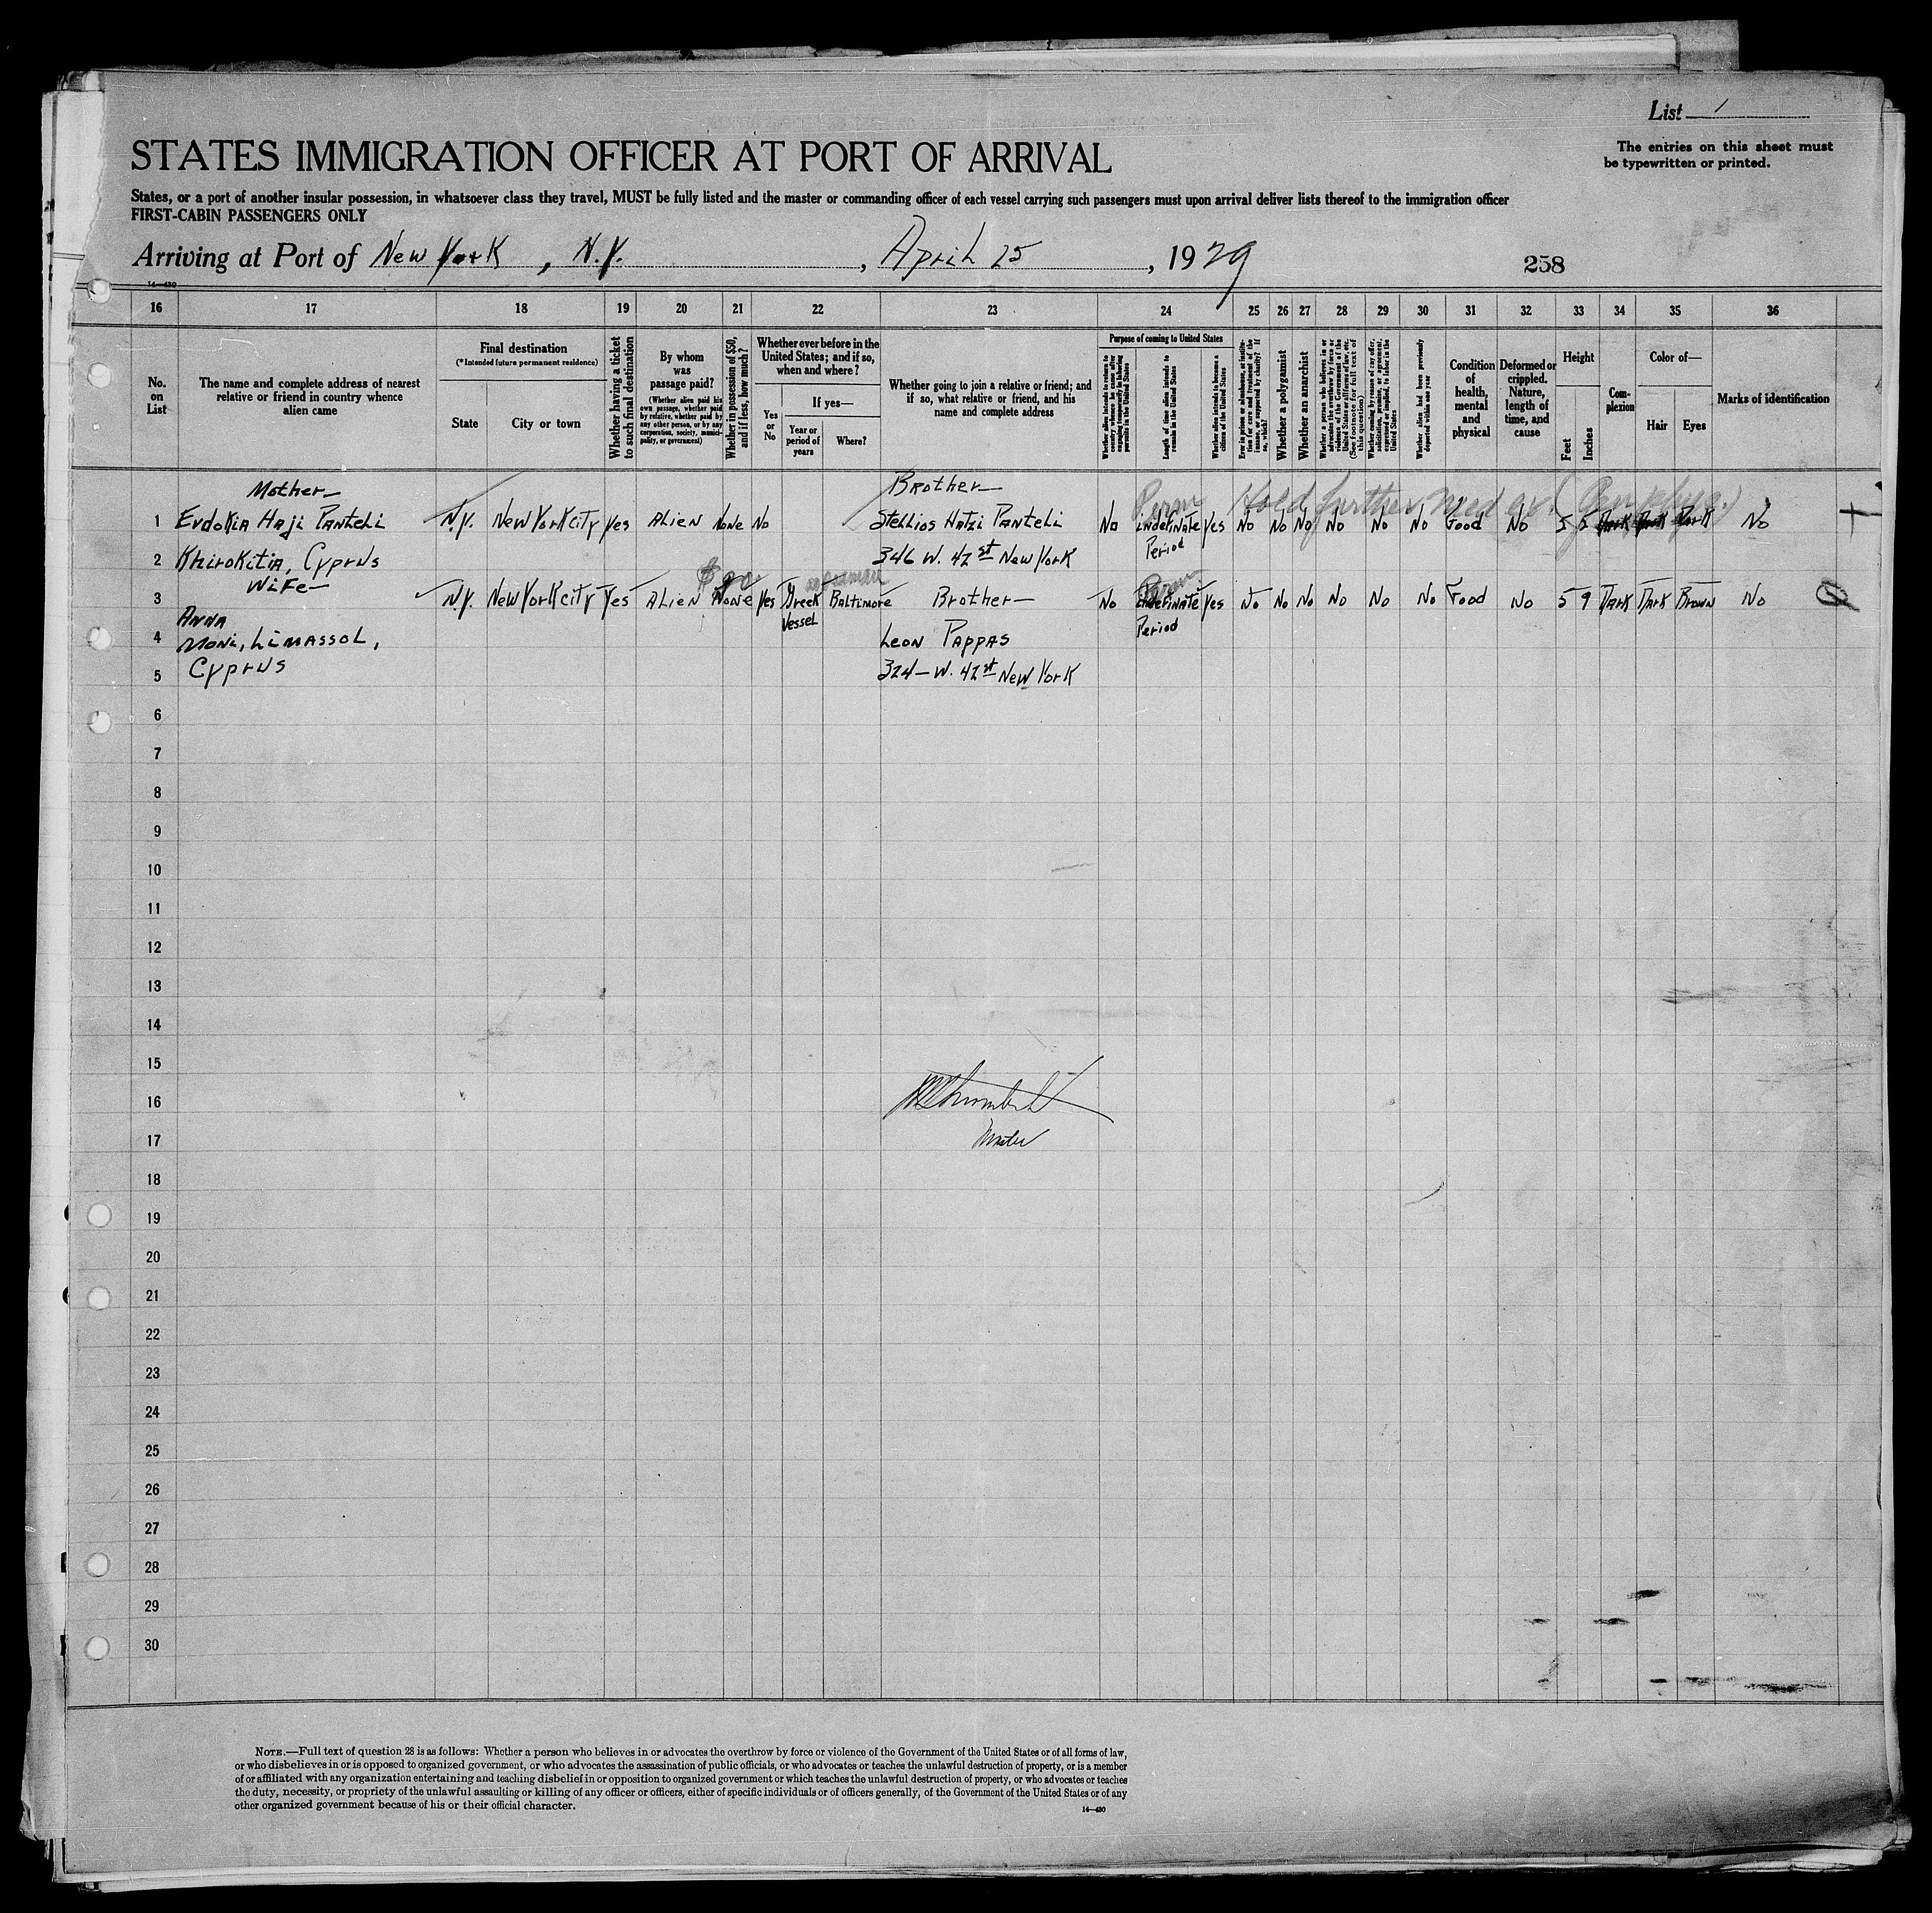 List 1
The entries on this sheet must
be typewritten or printed.
STATES IMMIGRATION OFFICER AT PORT OF ARRIVAL
States, or a port of another insular possession, in whatsoever class they travel, MUST be fully listed and the master or commanding officer of each vessel carrying such passengers must upon arrival deliver lists thereof to the immigration officer
FIRST-CABIN PASSENGERS ONLY
Arriving at Port of New York, N.Y., April 25, 1929
258
14—430
16 17 18 19 20 21 22 23 24 25 26 27 28 29 30 31 32 33 34 35 36
No. on List
The name and complete address of nearest
relative or friend in country whence
alien came
Final destination
(*Intended future permanent residence)
State
City or town
Whether having a ticket
to such final destination
By whom
was
passage paid?
(Whether alien paid his
own passage, whether paid
by relative, whether paid by
any other person, or by any
corporation, society, munici-
pality, or government)
Whether in possession of $50,
and if less, how much?
Whether ever before in the
United States; and if so,
when and where?
Yes or No
If yes—
Year or
period of
years
Where?
Whether going to join a relative or friend; and
if so, what relative or friend, and his
name and complete address
Purpose of coming to United States
Length of time alien intends to
remain in the United States
Whether alien intends to become a
citizen of the United States
Whether a polygamist
Whether an anarchist
Whether alien had been previously
deported within one year
Condition
of
health,
mental
and
physical
Deformed or
crippled.
Nature,
length of
time, and
cause
Height
Feet
Inches
Com-
plexion
Color of—
Hair
Eyes
Marks of identification
Mother— Brother— Perm Hold further med ex.
1 Evdokia Haji Panteli N.Y. New York City Yes Alien None No Stellios Hatzi Panteli No indefinate Yes No No No No No No Good No 5 5 Dark Dark Dark No
Period
2 Khirokitia, Cyprus 346 W. 42st New York
Wife—
3 N.Y. New York City Yes Alien None Yes Greek Baltimore Brother— No indefinate Yes No No No No No No Good No 5 9 Dark Dark Brown No
Anna Vessel Period
4 Moni, Limassol, Leon Pappas
5 Cyprus 324—W. 42st New York
6
7
8
9
10
11
12
13
14
15
16
17 Master
18
19
20
21
22
23
24
25
26
27
28
29
30
NOTE.—Full text of question 28 is as follows: Whether a person who believes in or advocates the overthrow by force or violence of the Government of the United States or of all forms of law,
or who disbelieves in or is opposed to organized government, or who advocates the assassination of public officials, or who advocates or teaches the unlawful destruction of property, or is a member
of or affiliated with any organization entertaining and teaching disbelief in or opposition to organized government or which teaches the unlawful destruction of property, or who advocates or teaches
the duty, necessity, or propriety of the unlawful assaulting or killing of any officer or officers, either of specific individuals or of officers generally, of the Government of the United States or of any
other organized government because of his or their official character.
14—430